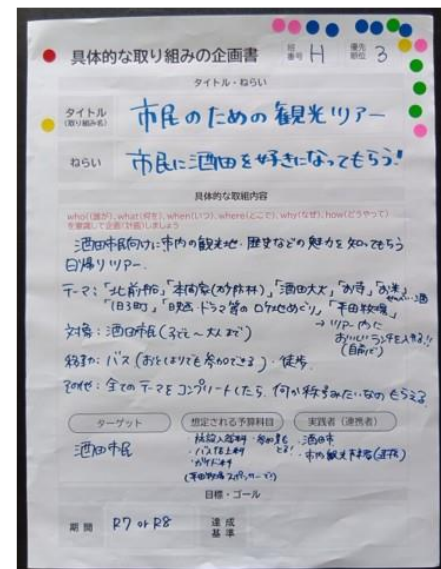 具体的な取り組みの企画書
班番号 H 優先順位 3
タイトル・ねらい
タイトル(取り組み名) 市民のための観光ツアー
ねらい 市民に酒田を好きになってもらう!
具体的な取組内容
who(誰が), what(何を), when(いつ), where(どこで), why(なぜ), how(どうやって)
を意識して企画(計画)しましょう
酒田市民向けに市内の観光地・歴史などの魅力を知ってもらう
日帰りツアー。
テーマ:「北前船」「本間家(防砂林)」「酒田大火」「お寺」「お米」
「旧3町」「映画・ドラマ等のロケ地めぐり」「平田牧場」
→ ツアー内に
おいしいランチを入れる!!
(自前で)
対象:酒田市民(子ども〜大人まで)
移動:バス(おとしよりでも参加できる)・徒歩
その他:全てのテーマをコンプリートしたら、何か称号みたいなのもらえる
ターゲット 想定される予算科目 実践者(連携者)
酒田市民
・施設入館料 ・参加費もとる!
・バス借上料
・ガイド料
(平田牧場スポンサーで)
・酒田市
・市内観光事業者(連携)
目標・ゴール
期間 R7 or R8 達成基準